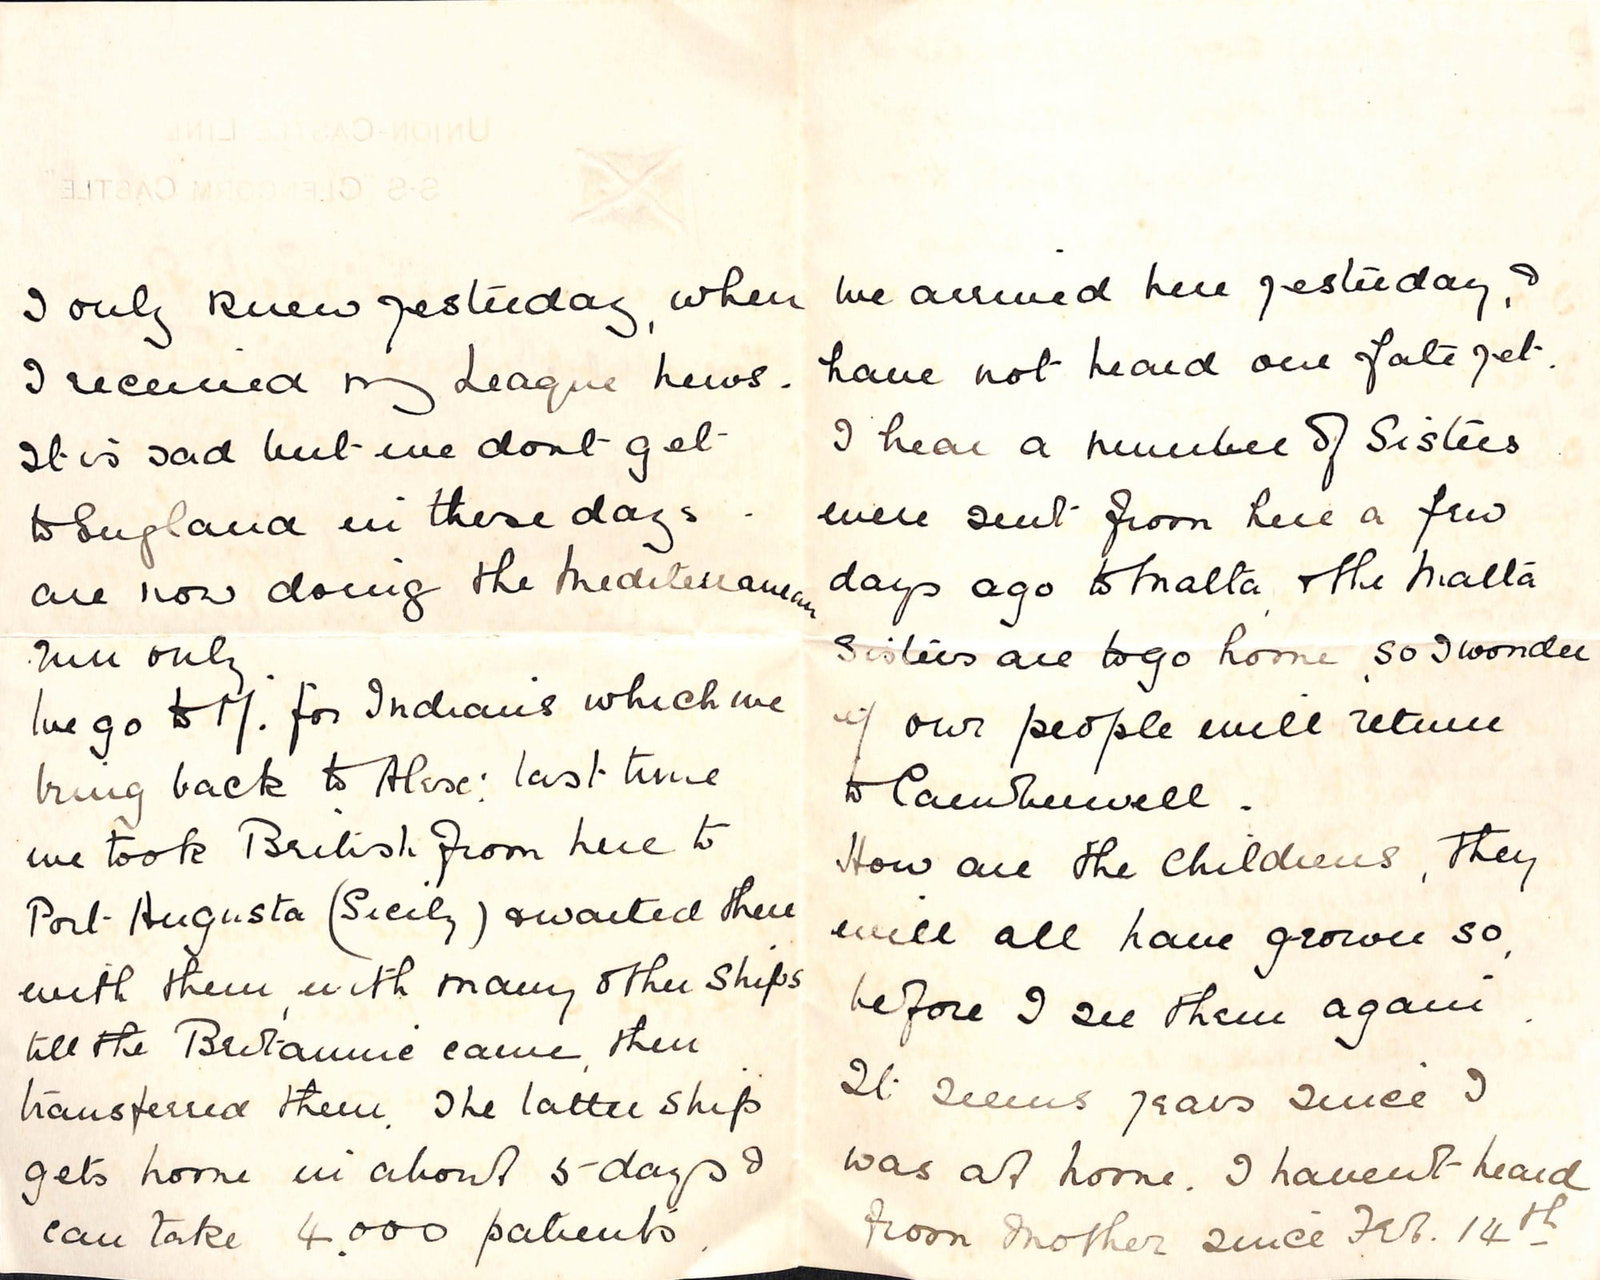 UNION-CASTLE LINE
S.S. "GLENGORM CASTLE"
I only knew yesterday, when
I received my League news.
It is sad but we dont get
to England in these days.
are now doing the Mediterranean
run only.
We go to M. for Indians which we
bring back to Alex: last time
we took British from here to
Port Augusta (Sicily) & waited there
with them, with many other ships
till the Britannic came, then
transferred them. The latter ship
gets home in about 5 days &
can take 4,000 patients.
We arrived here yesterday, &
have not heard our fate yet.
I hear a number of Sisters
were sent from here a few
days ago to Malta, & the Malta
Sisters are to go home, so I wonder
if our people will return
to Camberwell.
How are the childrens, they
will all have grown so,
before I see them again.
It seems years since I
was at home. I havent heard
from Mother since Feb. 14th